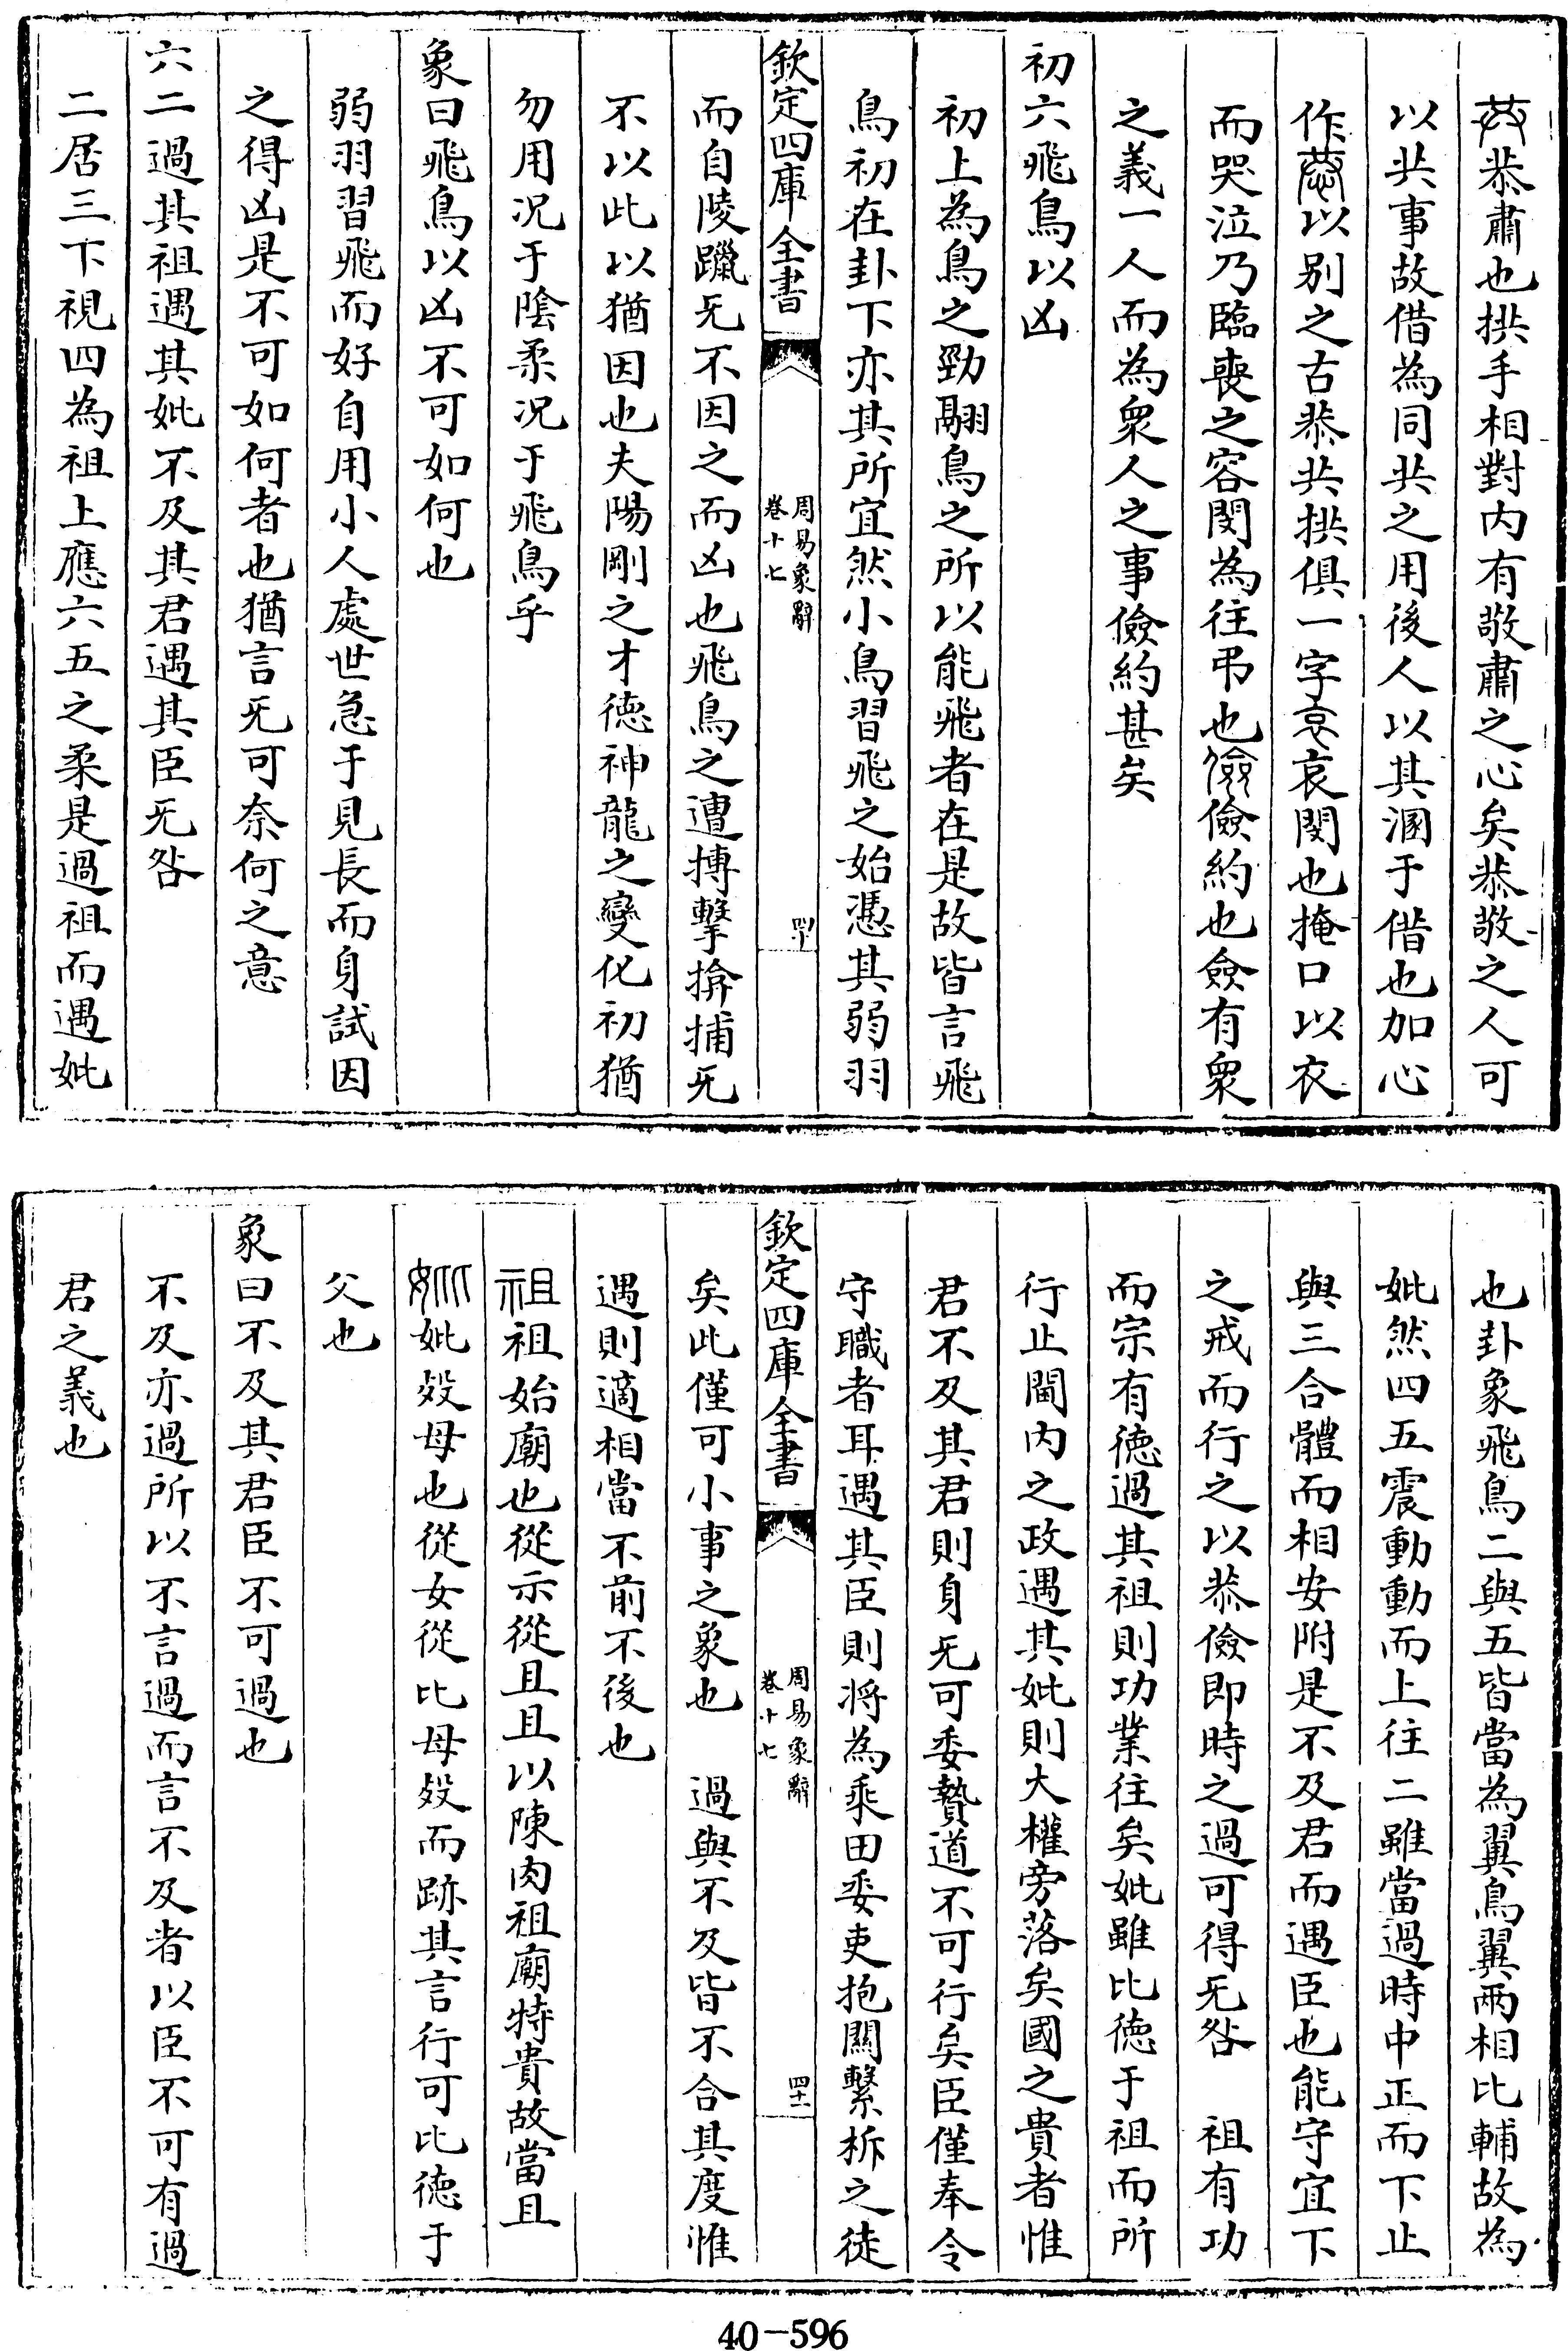 恭肅也拱手相對内有敬肅之心矣恭敬之人可
以共事故借為同共之用後人以其溷于借也加心
作以别之古恭共拱俱一字哀閔也掩口以衣
而哭泣乃臨喪之容閔為往弔也儉約也僉有衆
之義一人而為衆人之事儉約甚矣
初六飛鳥以凶
初上為鳥之勁翮鳥之所以能飛者在是故皆言飛
鳥初在卦下亦其所宜然小鳥習飛之始憑其弱羽
欽定四庫全書
周易象辭
卷十七
四十
而自陵躐无不因之而凶也飛鳥之遭搏擊揜捕无
不以此以猶因也夫陽剛之才徳神龍之變化初猶
勿用况于陰柔况于飛鳥乎
象曰飛鳥以凶不可如何也
弱羽習飛而好自用小人處世急于見長而身試因
之得凶是不可如何者也猶言无可奈何之意
六二過其祖遇其妣不及其君遇其臣无咎
二居三下視四為祖上應六五之柔是過祖而遇妣
也卦象飛鳥二與五皆當為翼鳥翼兩相比輔故為
妣然四五震動動而上往二雖當過時中正而下止
與三合體而相安附是不及君而遇臣也能守宜下
之戒而行之以恭儉即時之過可得无咎　祖有功
而宗有徳過其祖則功業往矣妣雖比徳于祖而所
行止閫内之政遇其妣則大權旁落矣國之貴者惟
君不及其君則身无可委贄道不可行矣臣僅奉令
守職者耳遇其臣則将為乘田委吏抱關擊柝之徒
欽定四庫全書
周易象辭
卷十七
四十一
矣此僅可小事之象也　過與不及皆不合其度惟
遇則適相當不前不後也
祖始廟也從示從且且以陳肉祖廟特貴故當且
妣殁母也從女從比母殁而跡其言行可比徳于
父也
象曰不及其君臣不可過也
不及亦過所以不言過而言不及者以臣不可有過
君之義也
40-596